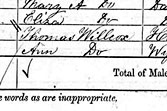 Mary A Do Da
Eliza Do
Thomas Willcox
Ann Do
Total of Male
e words as are inappropriate.